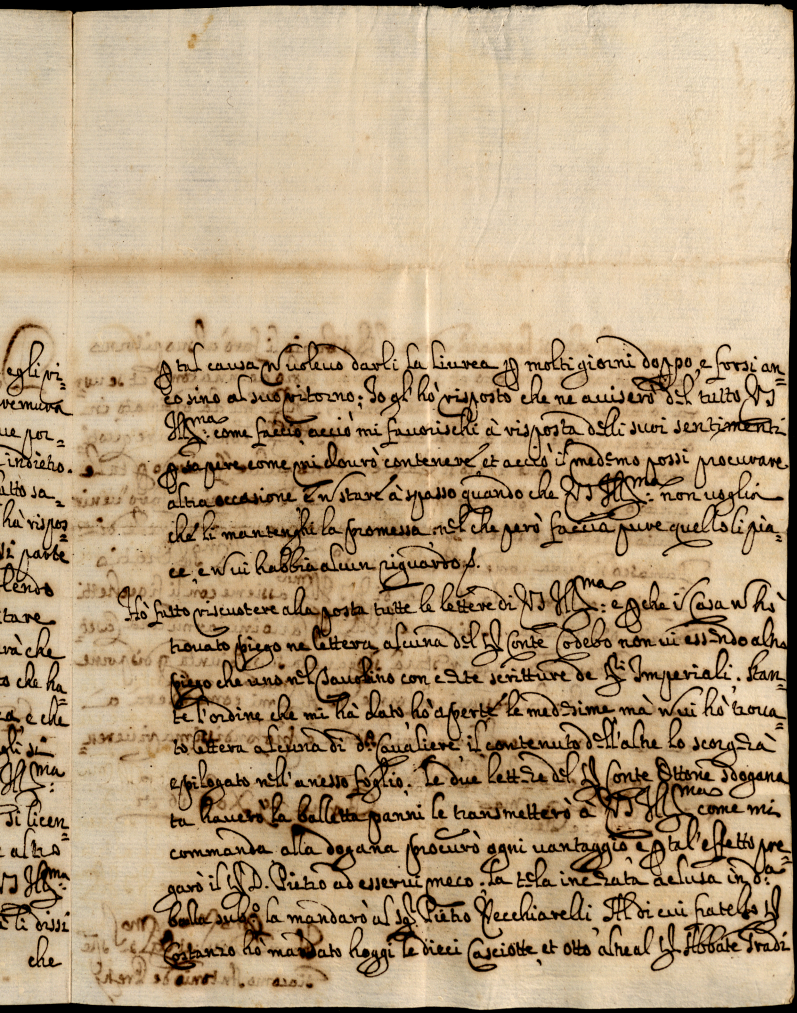 egli vi=
ve por=
indietro.
utto sa=
hà rispos=
parte
tare
rà che
to che ha=
e che
Ill.ma
Si licen=
e altro
VS Ill.ma
li dissi
che
p tal causa n voleuo darli la liurea p molti giorni doppo, e forsi an=
co sino al suo ritorno; Io gl'hò risposto che ne auiserò del tutto VS
Ill.ma: come faccio acciò mi fauorischi à risposta delli suoi sentimenti
p sapere come mi dourò contenere, et acciò il medemo possi procurare
altra occasione e n stare à spasso quando che VS Ill.ma: non voglia
che li mantenghi la promessa nel che però faccia pure quello li pia=
ce, e n ui habbia alcun riguardo.
Hò fatto riscuotere alla posta tutte le lettere di VS Ill.ma: e p che i Casa n hò
trouato piego ne lettera alcuna del S Conte Codebò non ui essendo altro
piego che uno nel Tauolino con e dte scritture de SS.ri Imperiali. Stan=
te l'ordine che mi hà dato hò aperte le medesime mà n ui hò troua=
to lettera alcuna di do Caualiere il contenuto dell'altre lo scorgerà
epilogato nell'anesso foglio. Le due lettere del S Conte Ottone sdogana
ta hauerò la balletta panni le transmetterò à VS Ill.ma come mi
commanda alla dogana procurò ogni uantaggio e p tal'effetto pre=
garò il S D. Pietro ad esserui meco. la tela incerata aclusa in da
balla subo la mandarò al Sr Pietro Vecchiarelli Al di cui fratello S
Costanzo hò mandato hoggi le dieci Casciotte, et otto altre al S Abbate Tradi